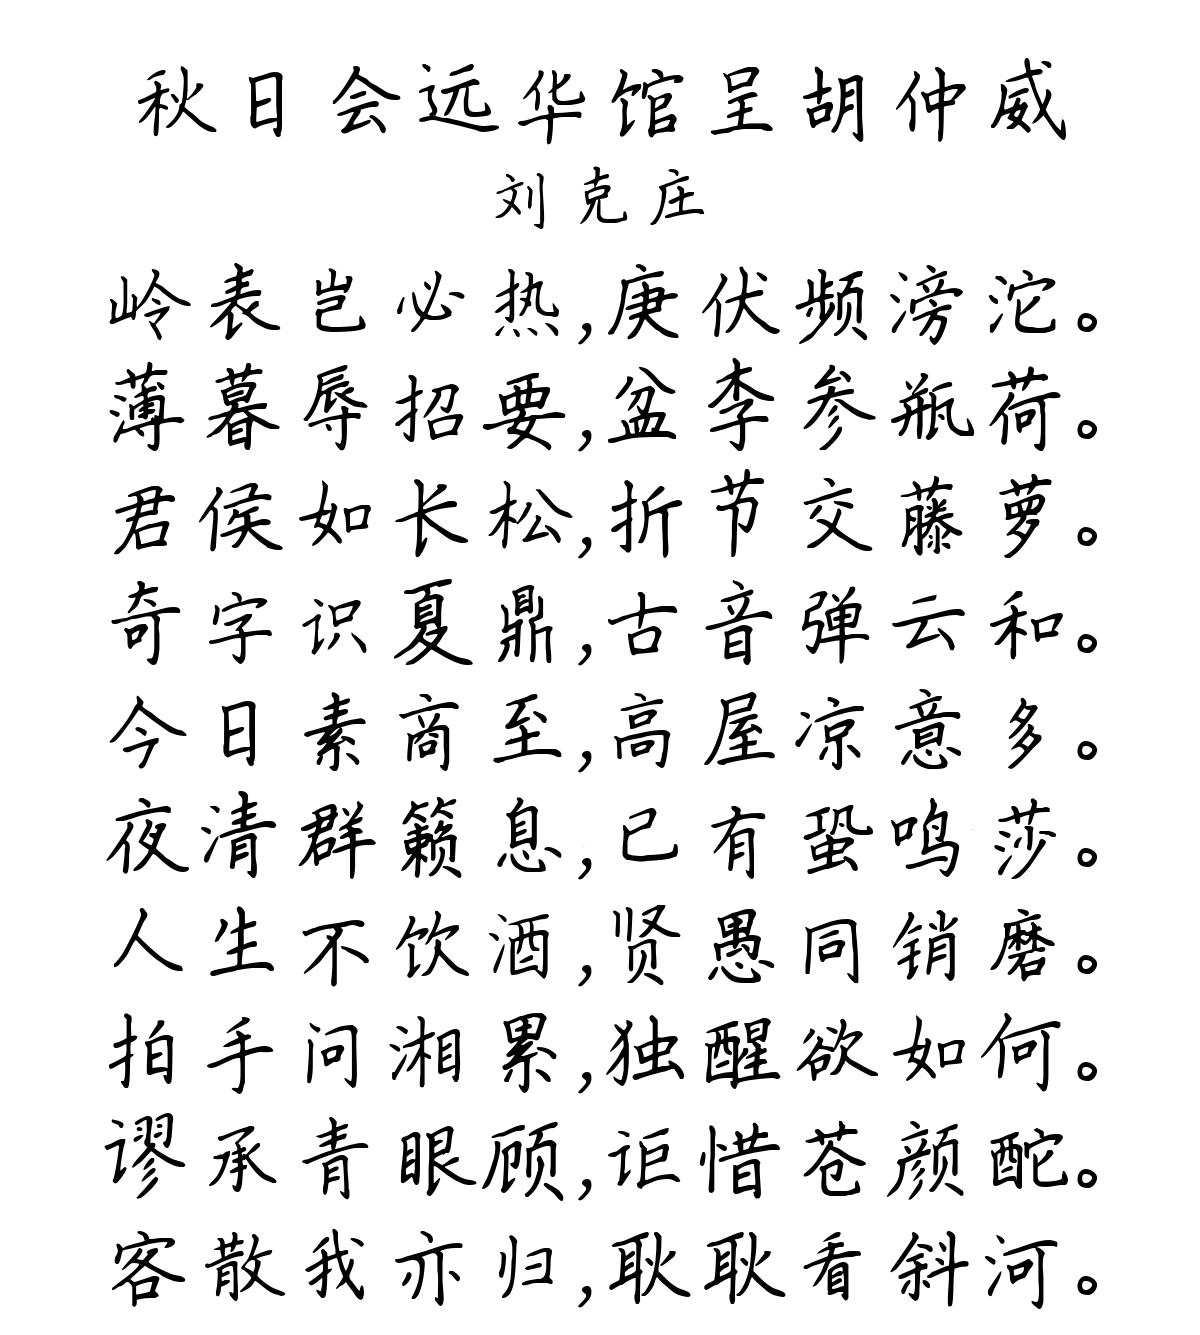 秋日会远华馆呈胡仲威
刘克庄
岭表岂必热,庚伏频滂沱。
薄暮辱招要,盆李参瓶荷。
君侯如长松,折节交藤萝。
奇字识夏鼎,古音弹云和。
今日素商至,高屋凉意多。
夜清群籁息,已有蛩鸣莎。
人生不饮酒,贤愚同销磨。
拍手问湘累,独醒欲如何。
谬承青眼顾,讵惜苍颜酡。
客散我亦归,耿耿看斜河。